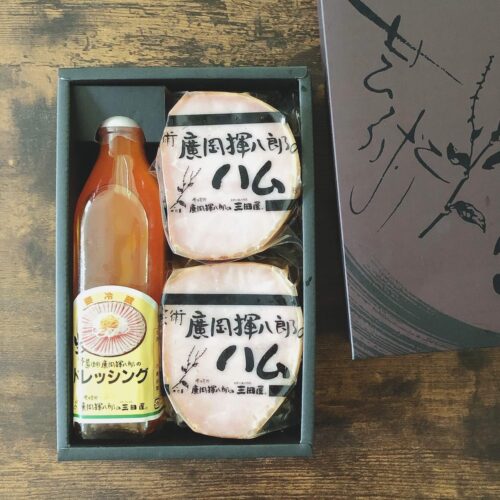 要冷蔵
廣岡揮八郎の
ドレッシング
廣岡揮八郎の三田屋
術
廣岡揮八郎の
ハム
廣岡揮八郎の三田屋
芸術
廣岡揮八郎の
ハム
廣岡揮八郎の三田屋